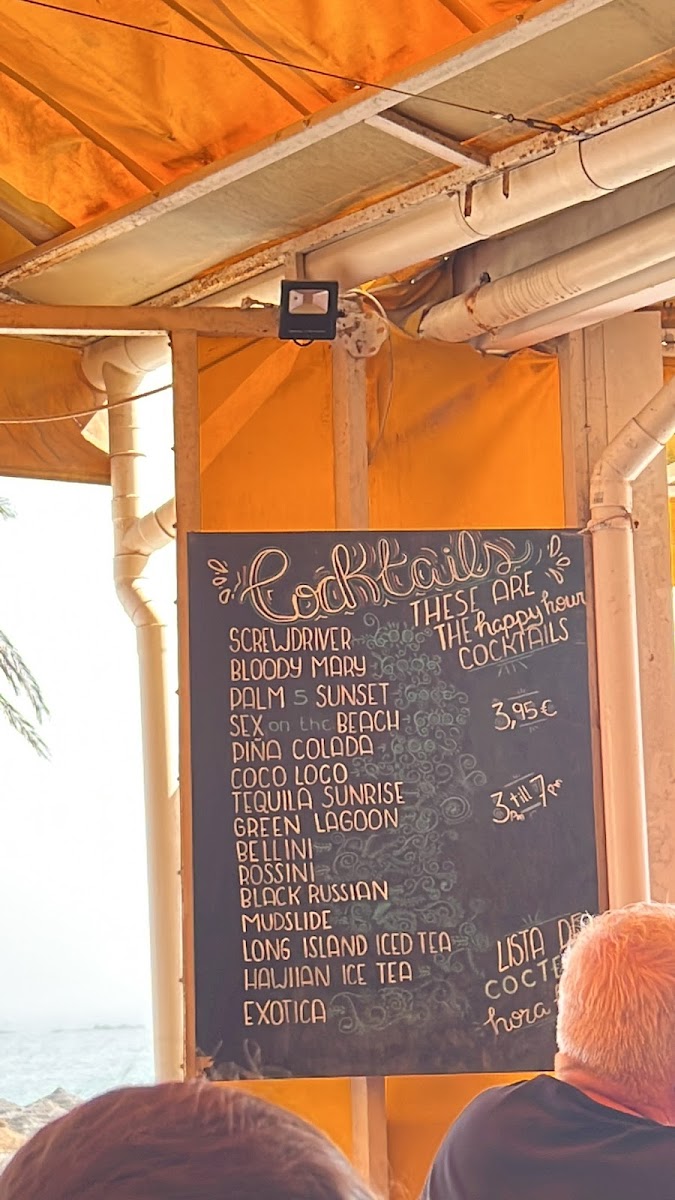 Cocktails
THESE ARE
THE happy hour
COCKTAILS
SCREWDRIVER
BLOODY MARY
PALM 5 SUNSET
SEX on the BEACH
PIÑA COLADA
COCO LOCO
TEQUILA SUNRISE
GREEN LAGOON
BELLINI
ROSSINI
BLACK RUSSIAN
MUDSLIDE
LONG ISLAND ICED TEA
HAWIIAN ICE TEA
EXOTICA
3,95€
3pm till 7pm
LISTA
hora